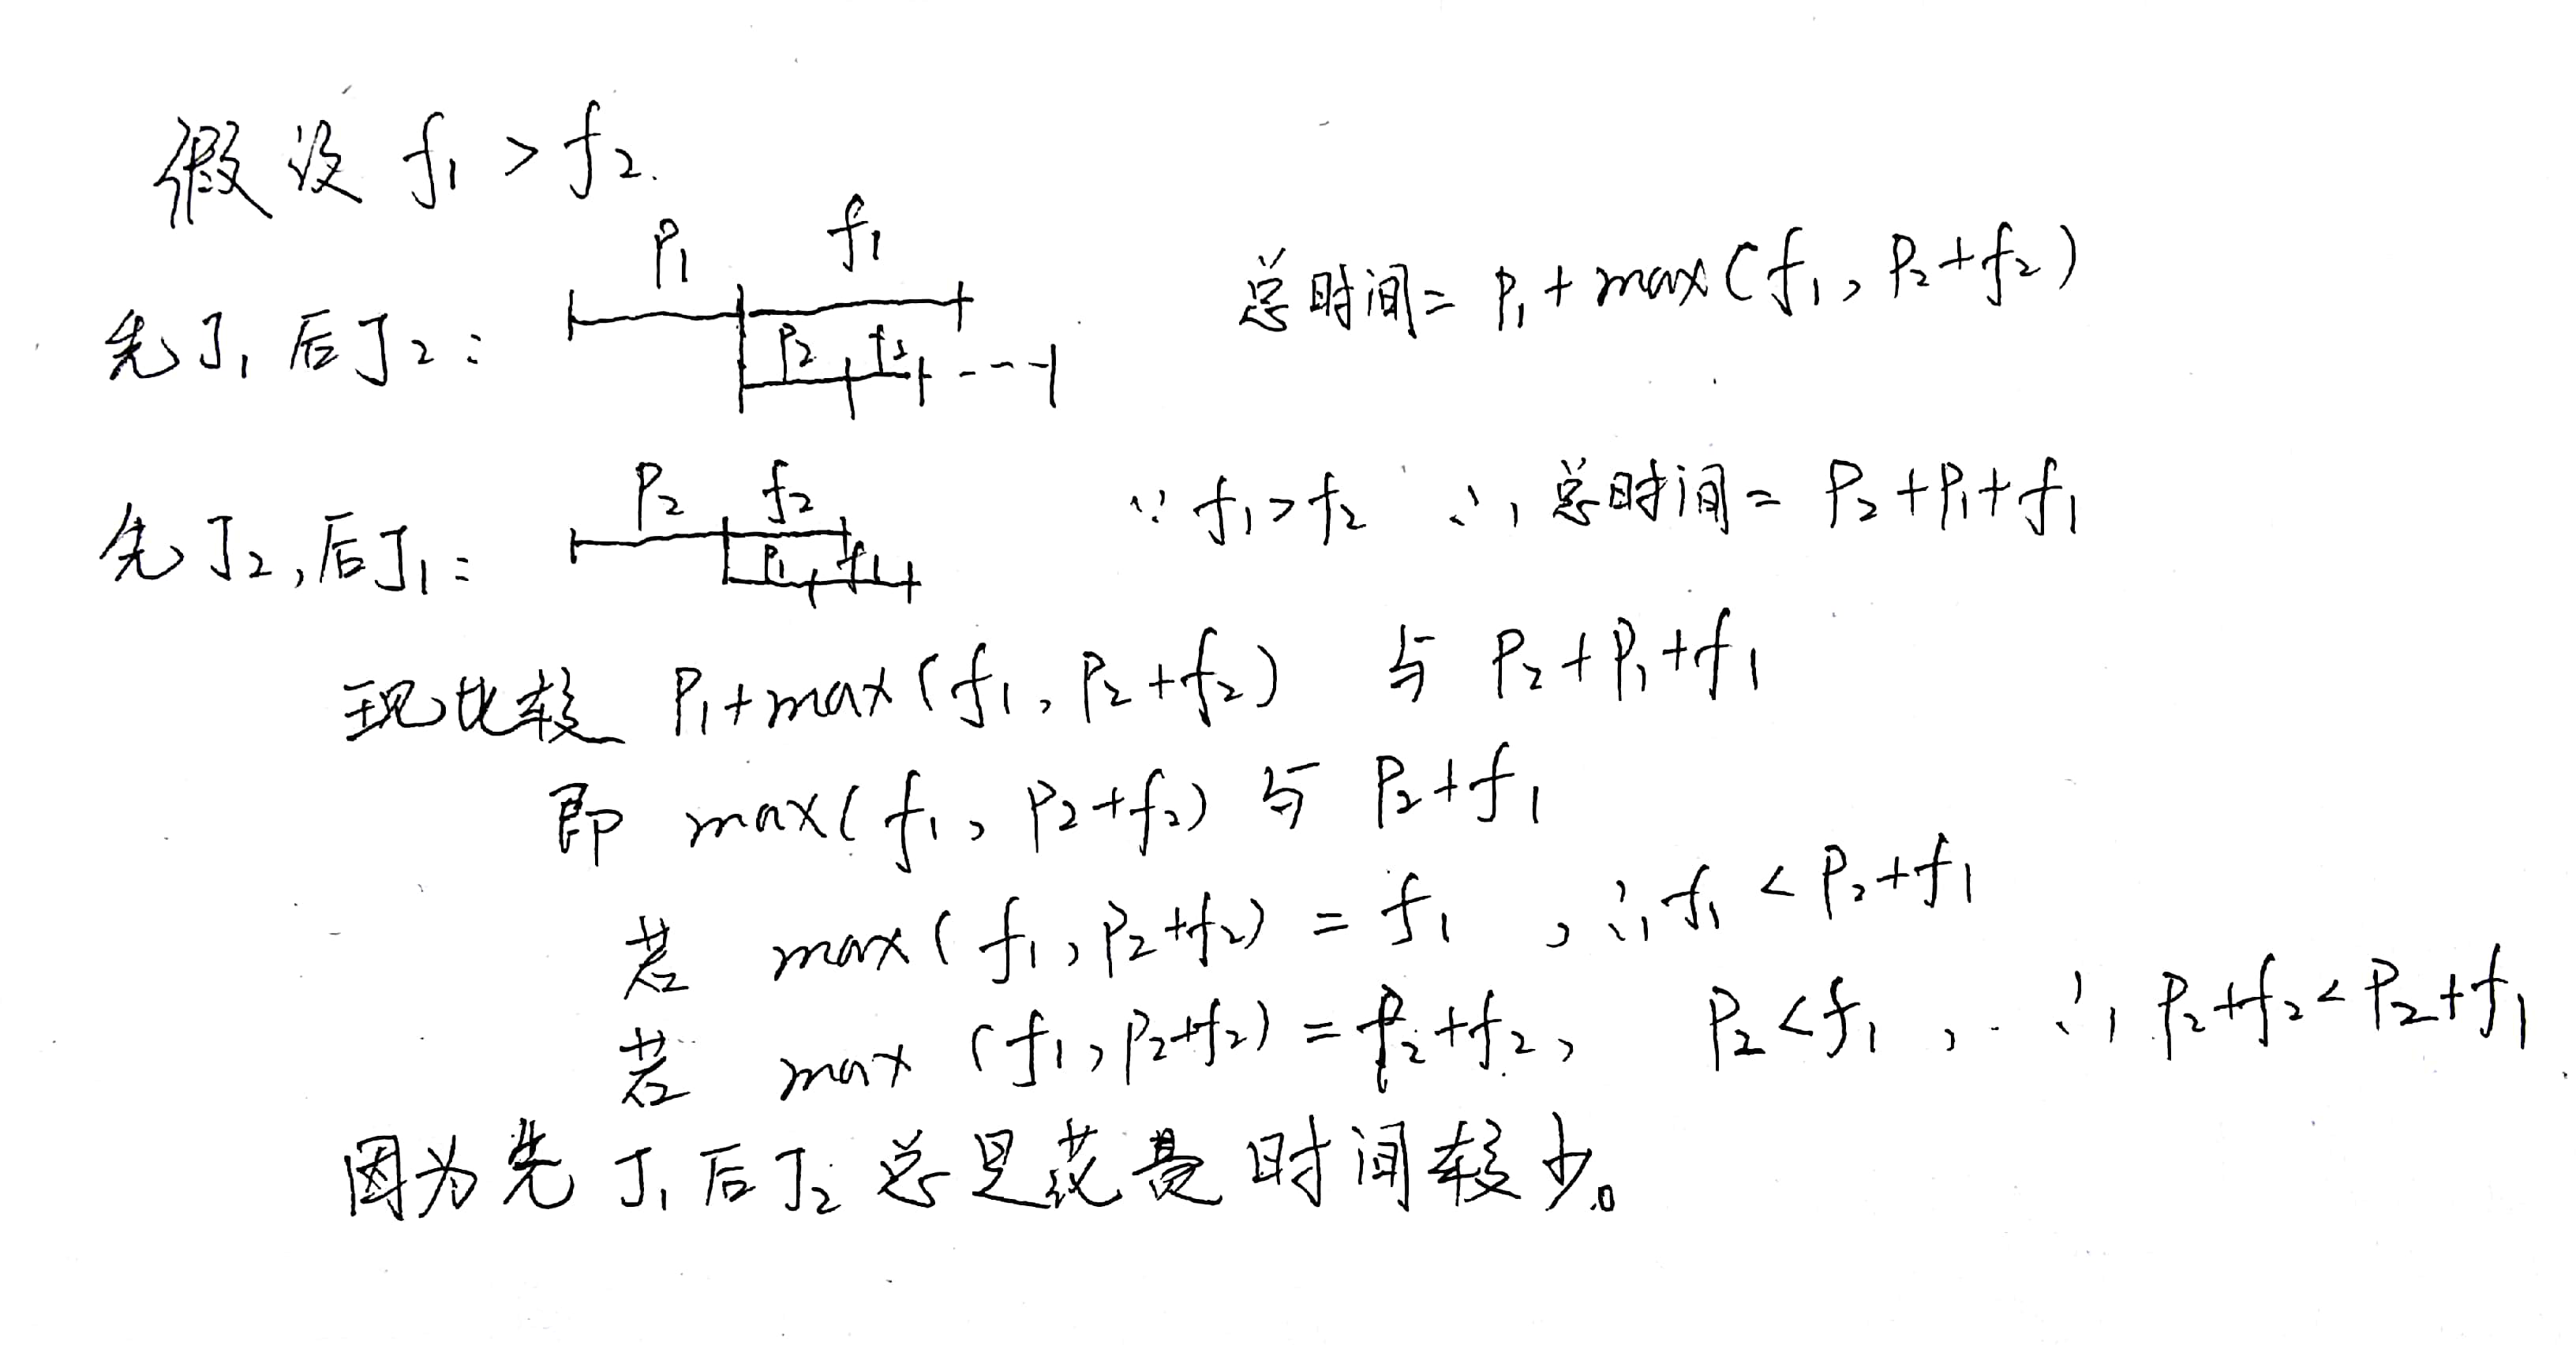 假设 f₁ > f₂.
P₁ f₁
先J₁后J₂: P₂ f₂ 总时间= P₁+max(f₁, P₂+f₂)
P₂ f₂
先J₂,后J₁: P₁ f₁ ∵ f₁>f₂ ∴ 总时间= P₂+P₁+f₁
现比较 P₁+max(f₁, P₂+f₂) 与 P₂+P₁+f₁
即 max(f₁, P₂+f₂) 与 P₂+f₁
若 max(f₁, P₂+f₂) = f₁ , ∴ f₁ < P₂+f₁
若 max (f₁, P₂+f₂) = P₂+f₂, P₂<f₁, ∴ P₂+f₂<P₂+f₁
因为先J₁后J₂总是花费时间较少。